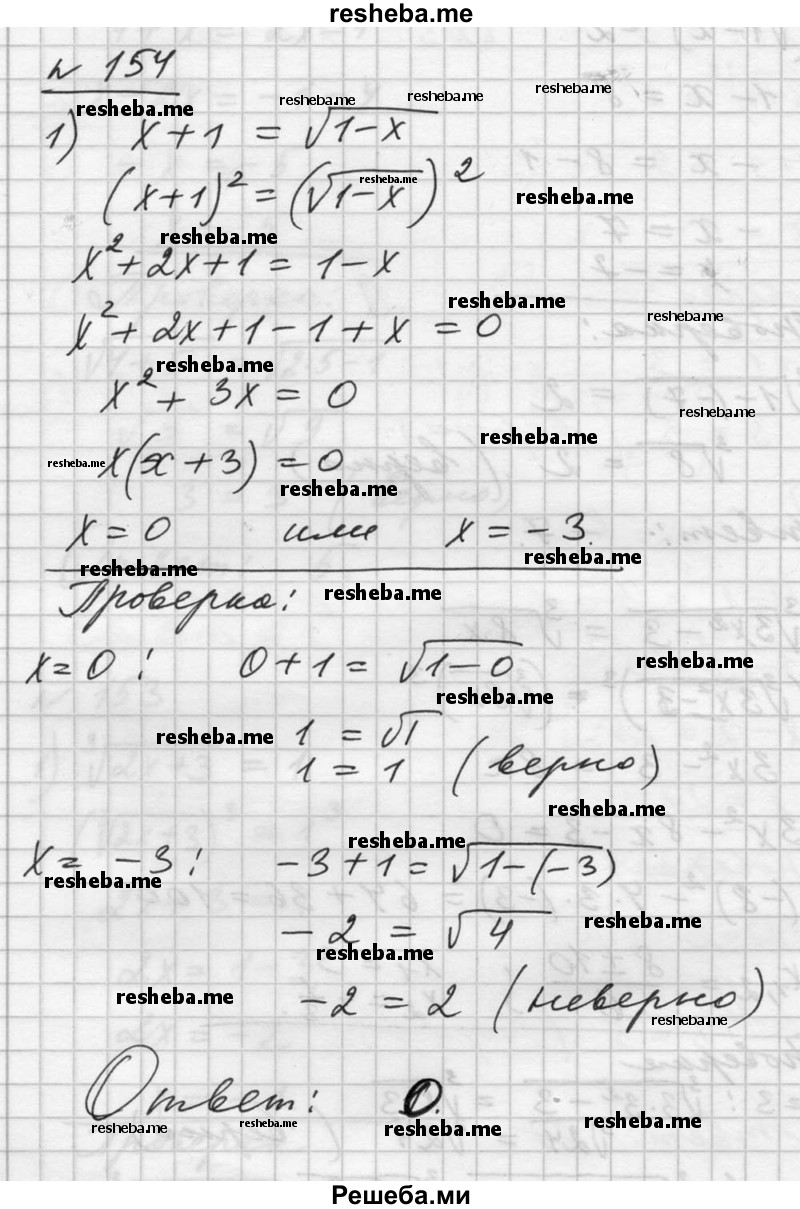 resheba.me
№ 154
resheba.me resheba.me resheba.me resheba.me
1) x + 1 = √(1−x)
resheba.me
(x+1)² = (√(1−x))²
resheba.me
resheba.me
x² + 2x + 1 = 1 − x
resheba.me
resheba.me
x² + 2x + 1 − 1 + x = 0
resheba.me
x² + 3x = 0
resheba.me
resheba.me
resheba.me x(x + 3) = 0
resheba.me
x = 0 или x = −3.
resheba.me
resheba.me
Проверка: resheba.me
x = 0: 0 + 1 = √(1−0)
resheba.me
resheba.me
resheba.me 1 = √1
1 = 1 (верно)
resheba.me
resheba.me
x = −3: −3 + 1 = √(1−(−3))
resheba.me
−2 = √4
resheba.me
resheba.me
resheba.me −2 = 2 (неверно)
resheba.me
Ответ: 0.
resheba.me resheba.me resheba.me resheba.me
Решеба.ми